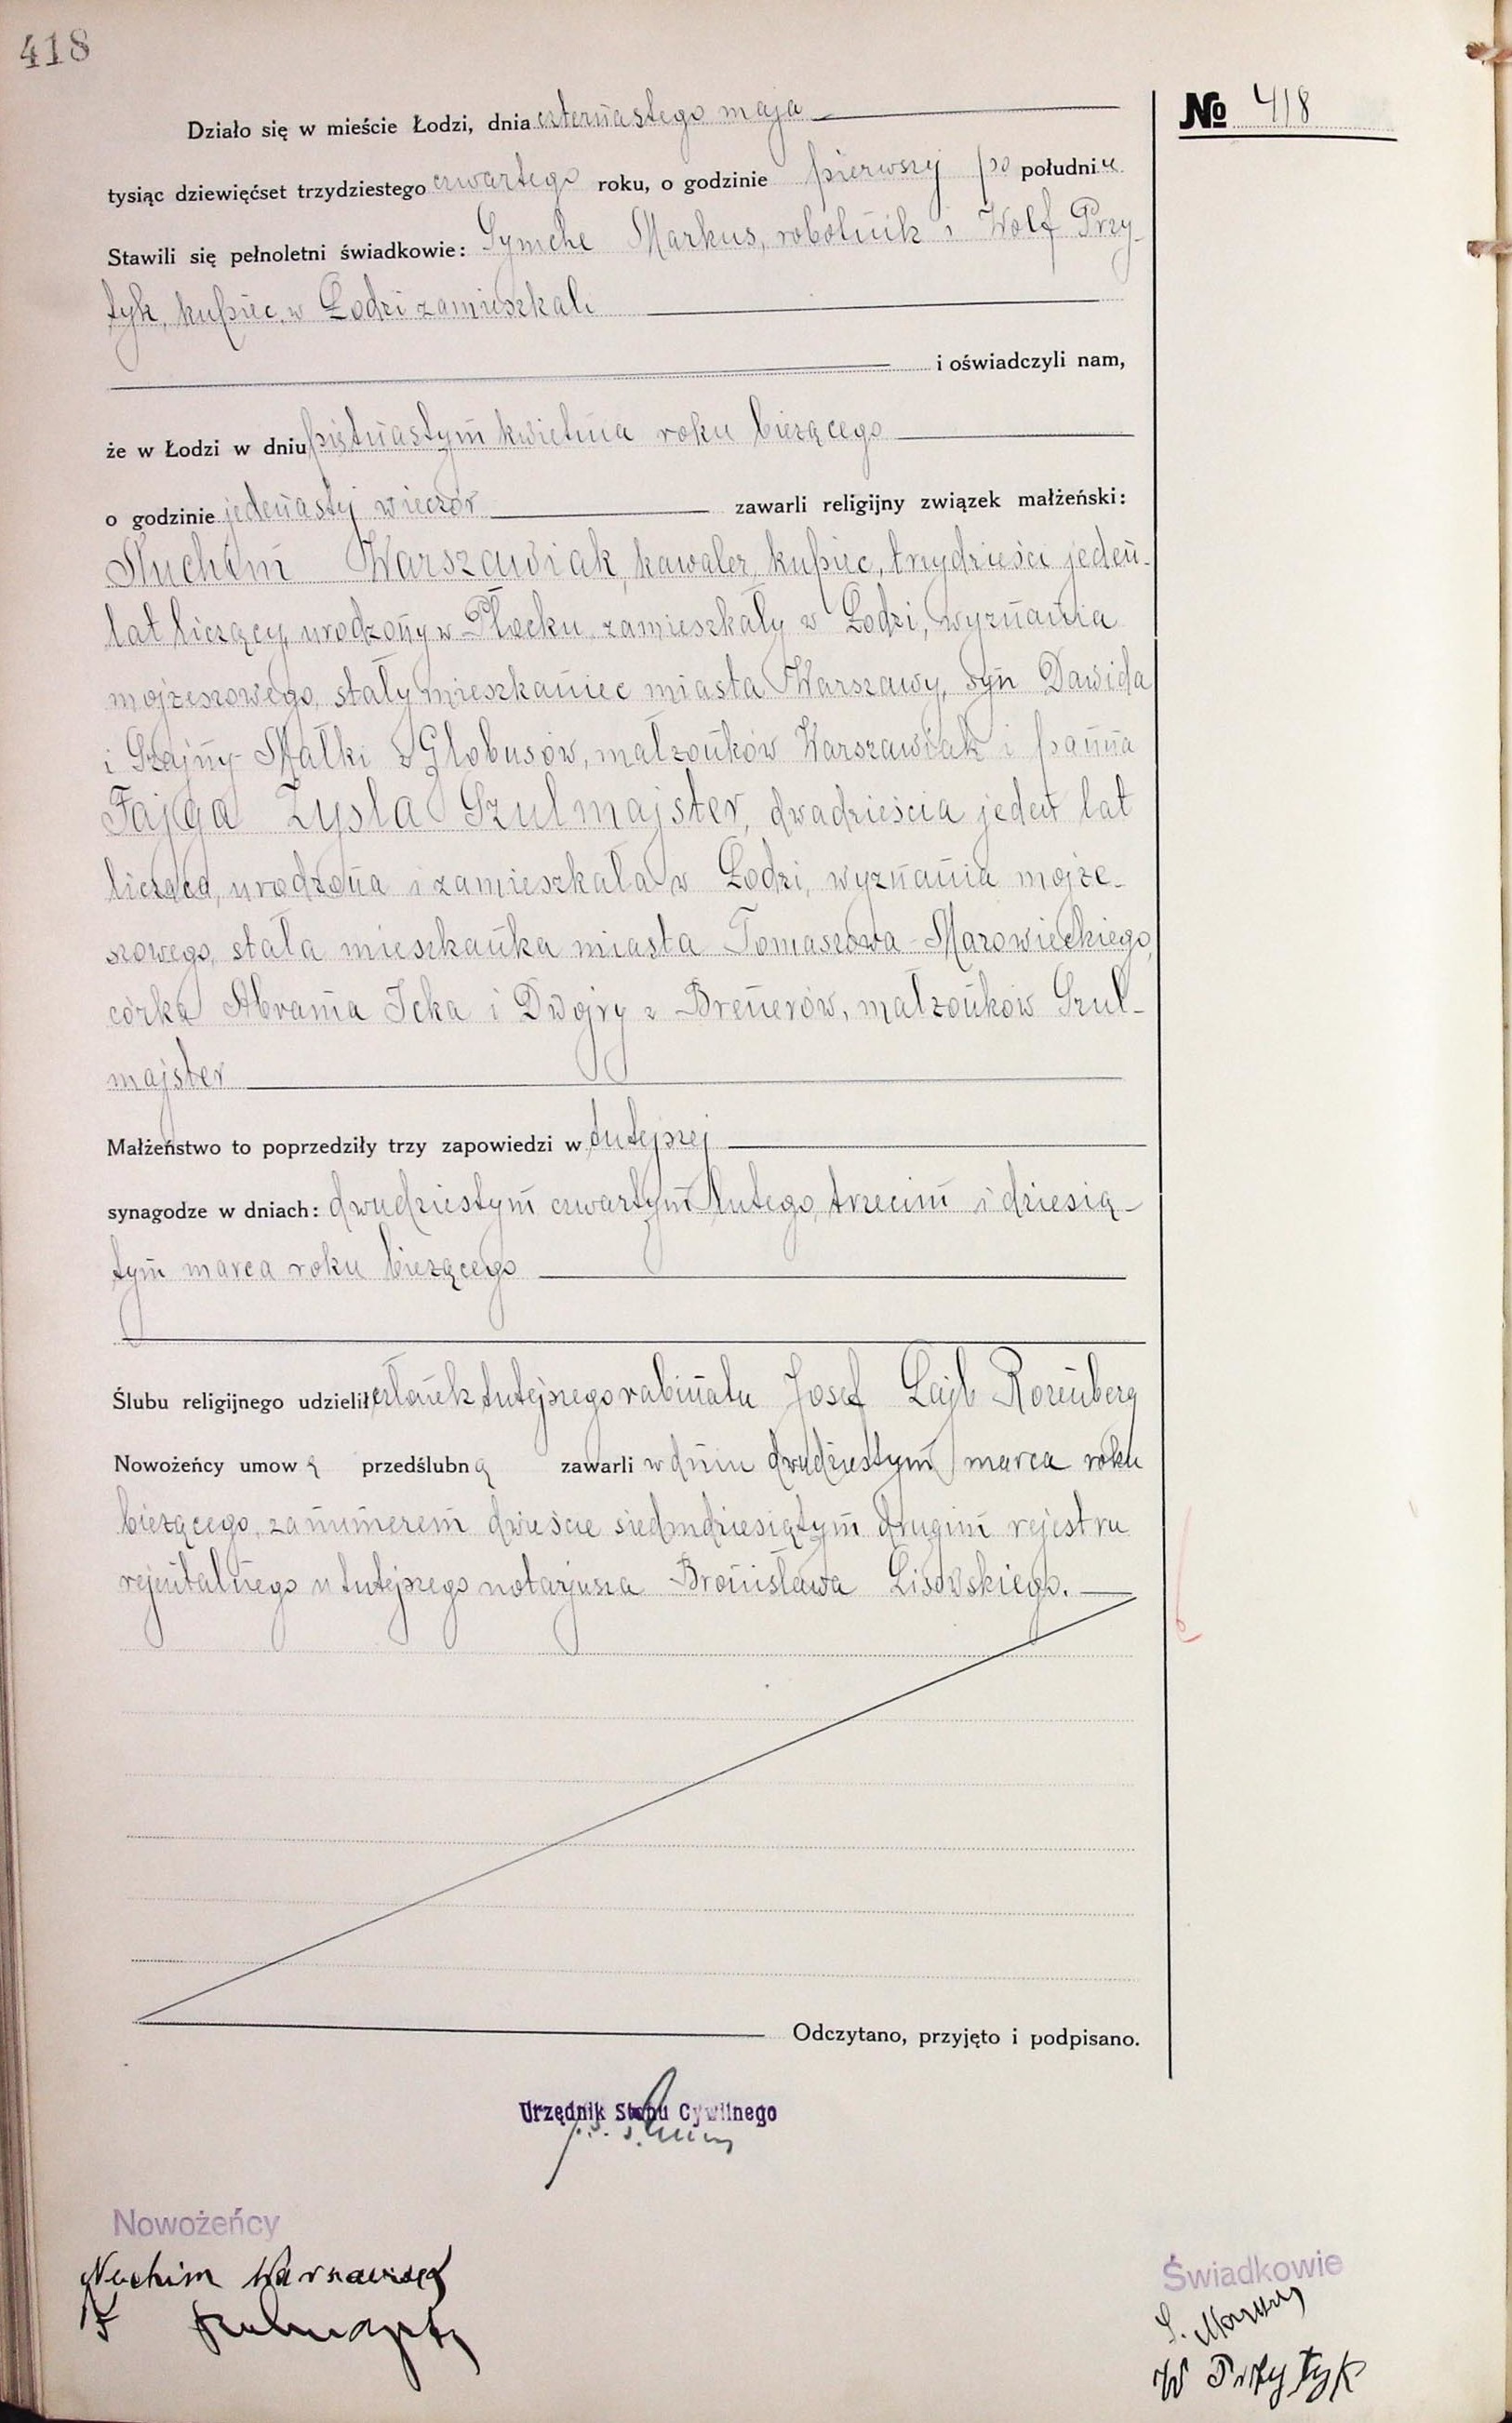 418
№ 418
Działo się w mieście Łodzi, dnia czternastego maja
tysiąc dziewięćset trzydziestego czwartego roku, o godzinie pierwszej po południu
Stawili się pełnoletni świadkowie: Symche Markus, robotnik i Wolf Przy-
tyk, kupiec, w Łodzi zamieszkali
i oświadczyli nam,
że w Łodzi w dniu piętnastym kwietnia roku bieżącego
o godzinie jedenastej wieczór zawarli religijny związek małżeński:
Nuchim Warszawiak, kawaler, kupiec, trzydzieści jeden
lat liczący, urodzony w Płocku, zamieszkały w Łodzi, wyznania
mojżeszowego, stały mieszkaniec miasta Warszawy, syn Dawida
i Szajny-Małki z Globusów, małżonków Warszawiak i panna
Fajga Zysla Szulmajster, dwadzieścia jeden lat
licząca, urodzona i zamieszkała w Łodzi, wyznania mojże-
szowego, stała mieszkanka miasta Tomaszowa-Mazowieckiego,
córka Abrama Icka i Dwojry z Brenerów, małżonków Szul-
majster
Małżeństwo to poprzedziły trzy zapowiedzi w tutejszej
synagodze w dniach: dwudziestym czwartym lutego, trzecim i dziesią-
tym marca roku bieżącego
Ślubu religijnego udzielił członek tutejszego rabinatu Josef Lajb Rozenberg
Nowożeńcy umową przedślubną zawarli w dniu dwudziestym marca roku
bieżącego, za numerem dwieście siedmdziesiątym drugim rejestru
rejentalnego u tutejszego notarjusza Bronisława Lisowskiego.
Odczytano, przyjęto i podpisano.
Urzędnik Stanu Cywilnego
Nowożeńcy
Nuchim Warszawiak
F Szulmajster
Świadkowie
S. Markus
W Przytyk